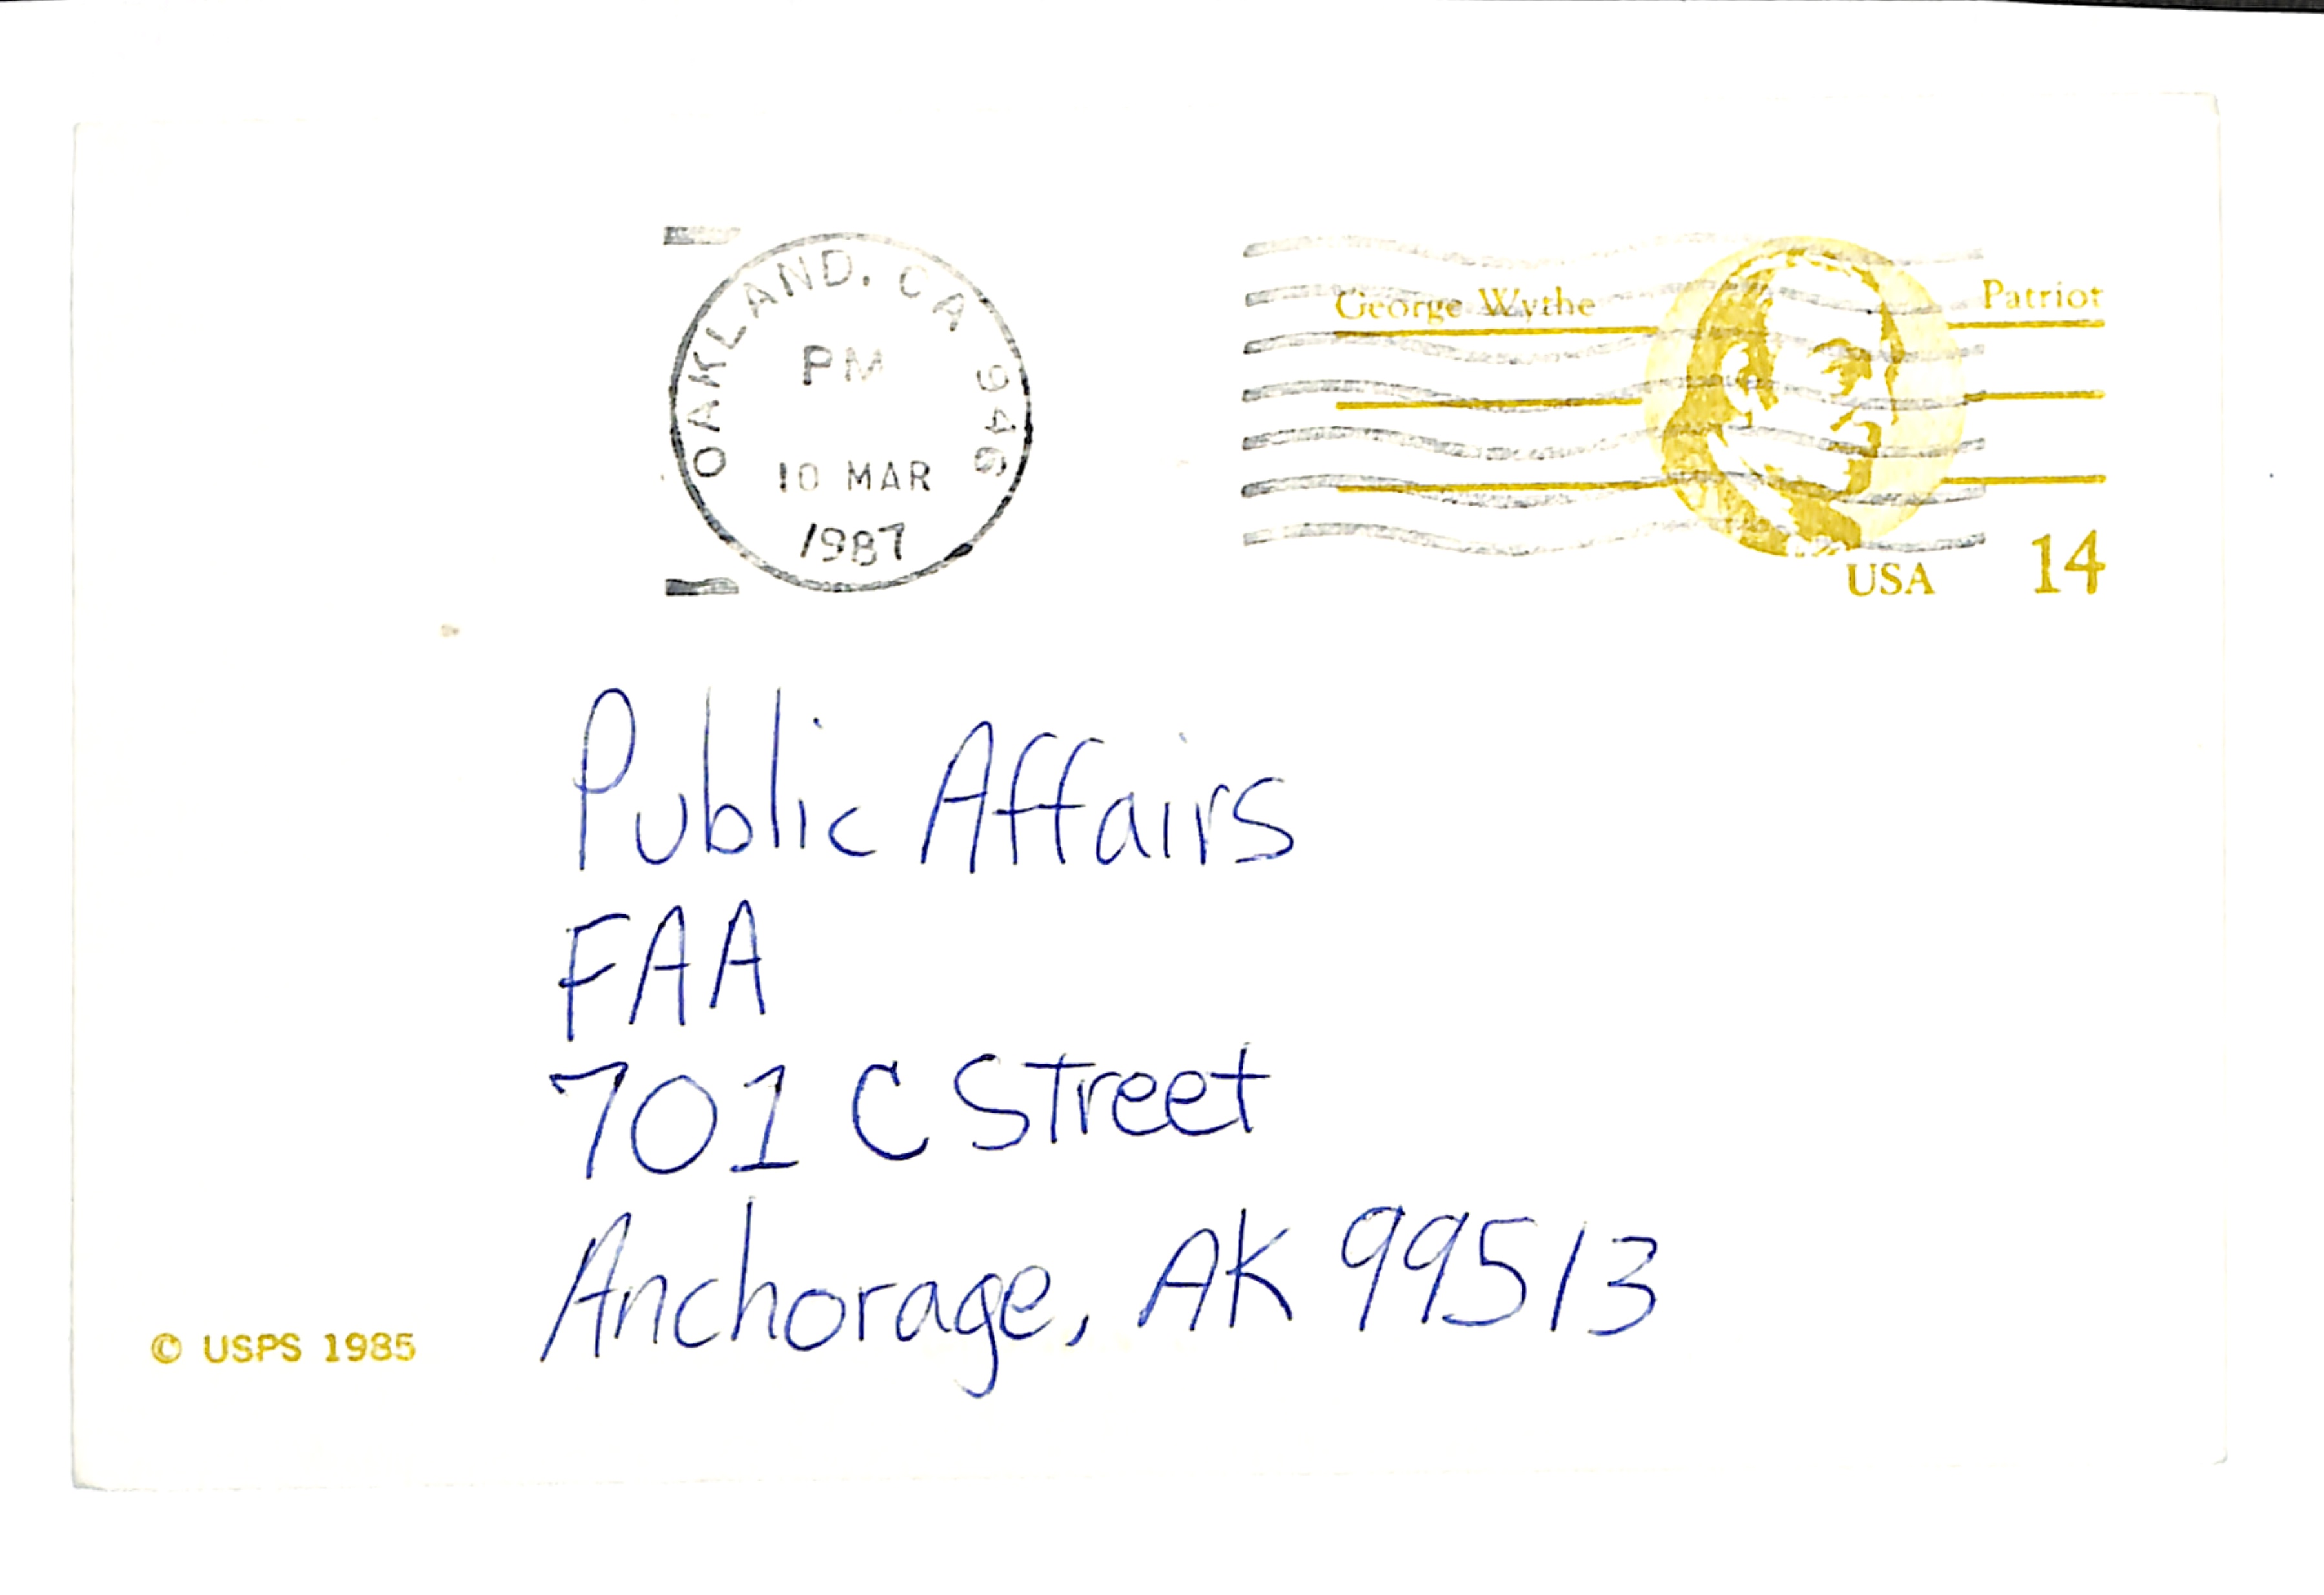 OAKLAND, CA 946
PM
10 MAR
1987
George Wythe Patriot
USA 14
Public Affairs
FAA
701 C Street
Anchorage, AK 99513
© USPS 1985